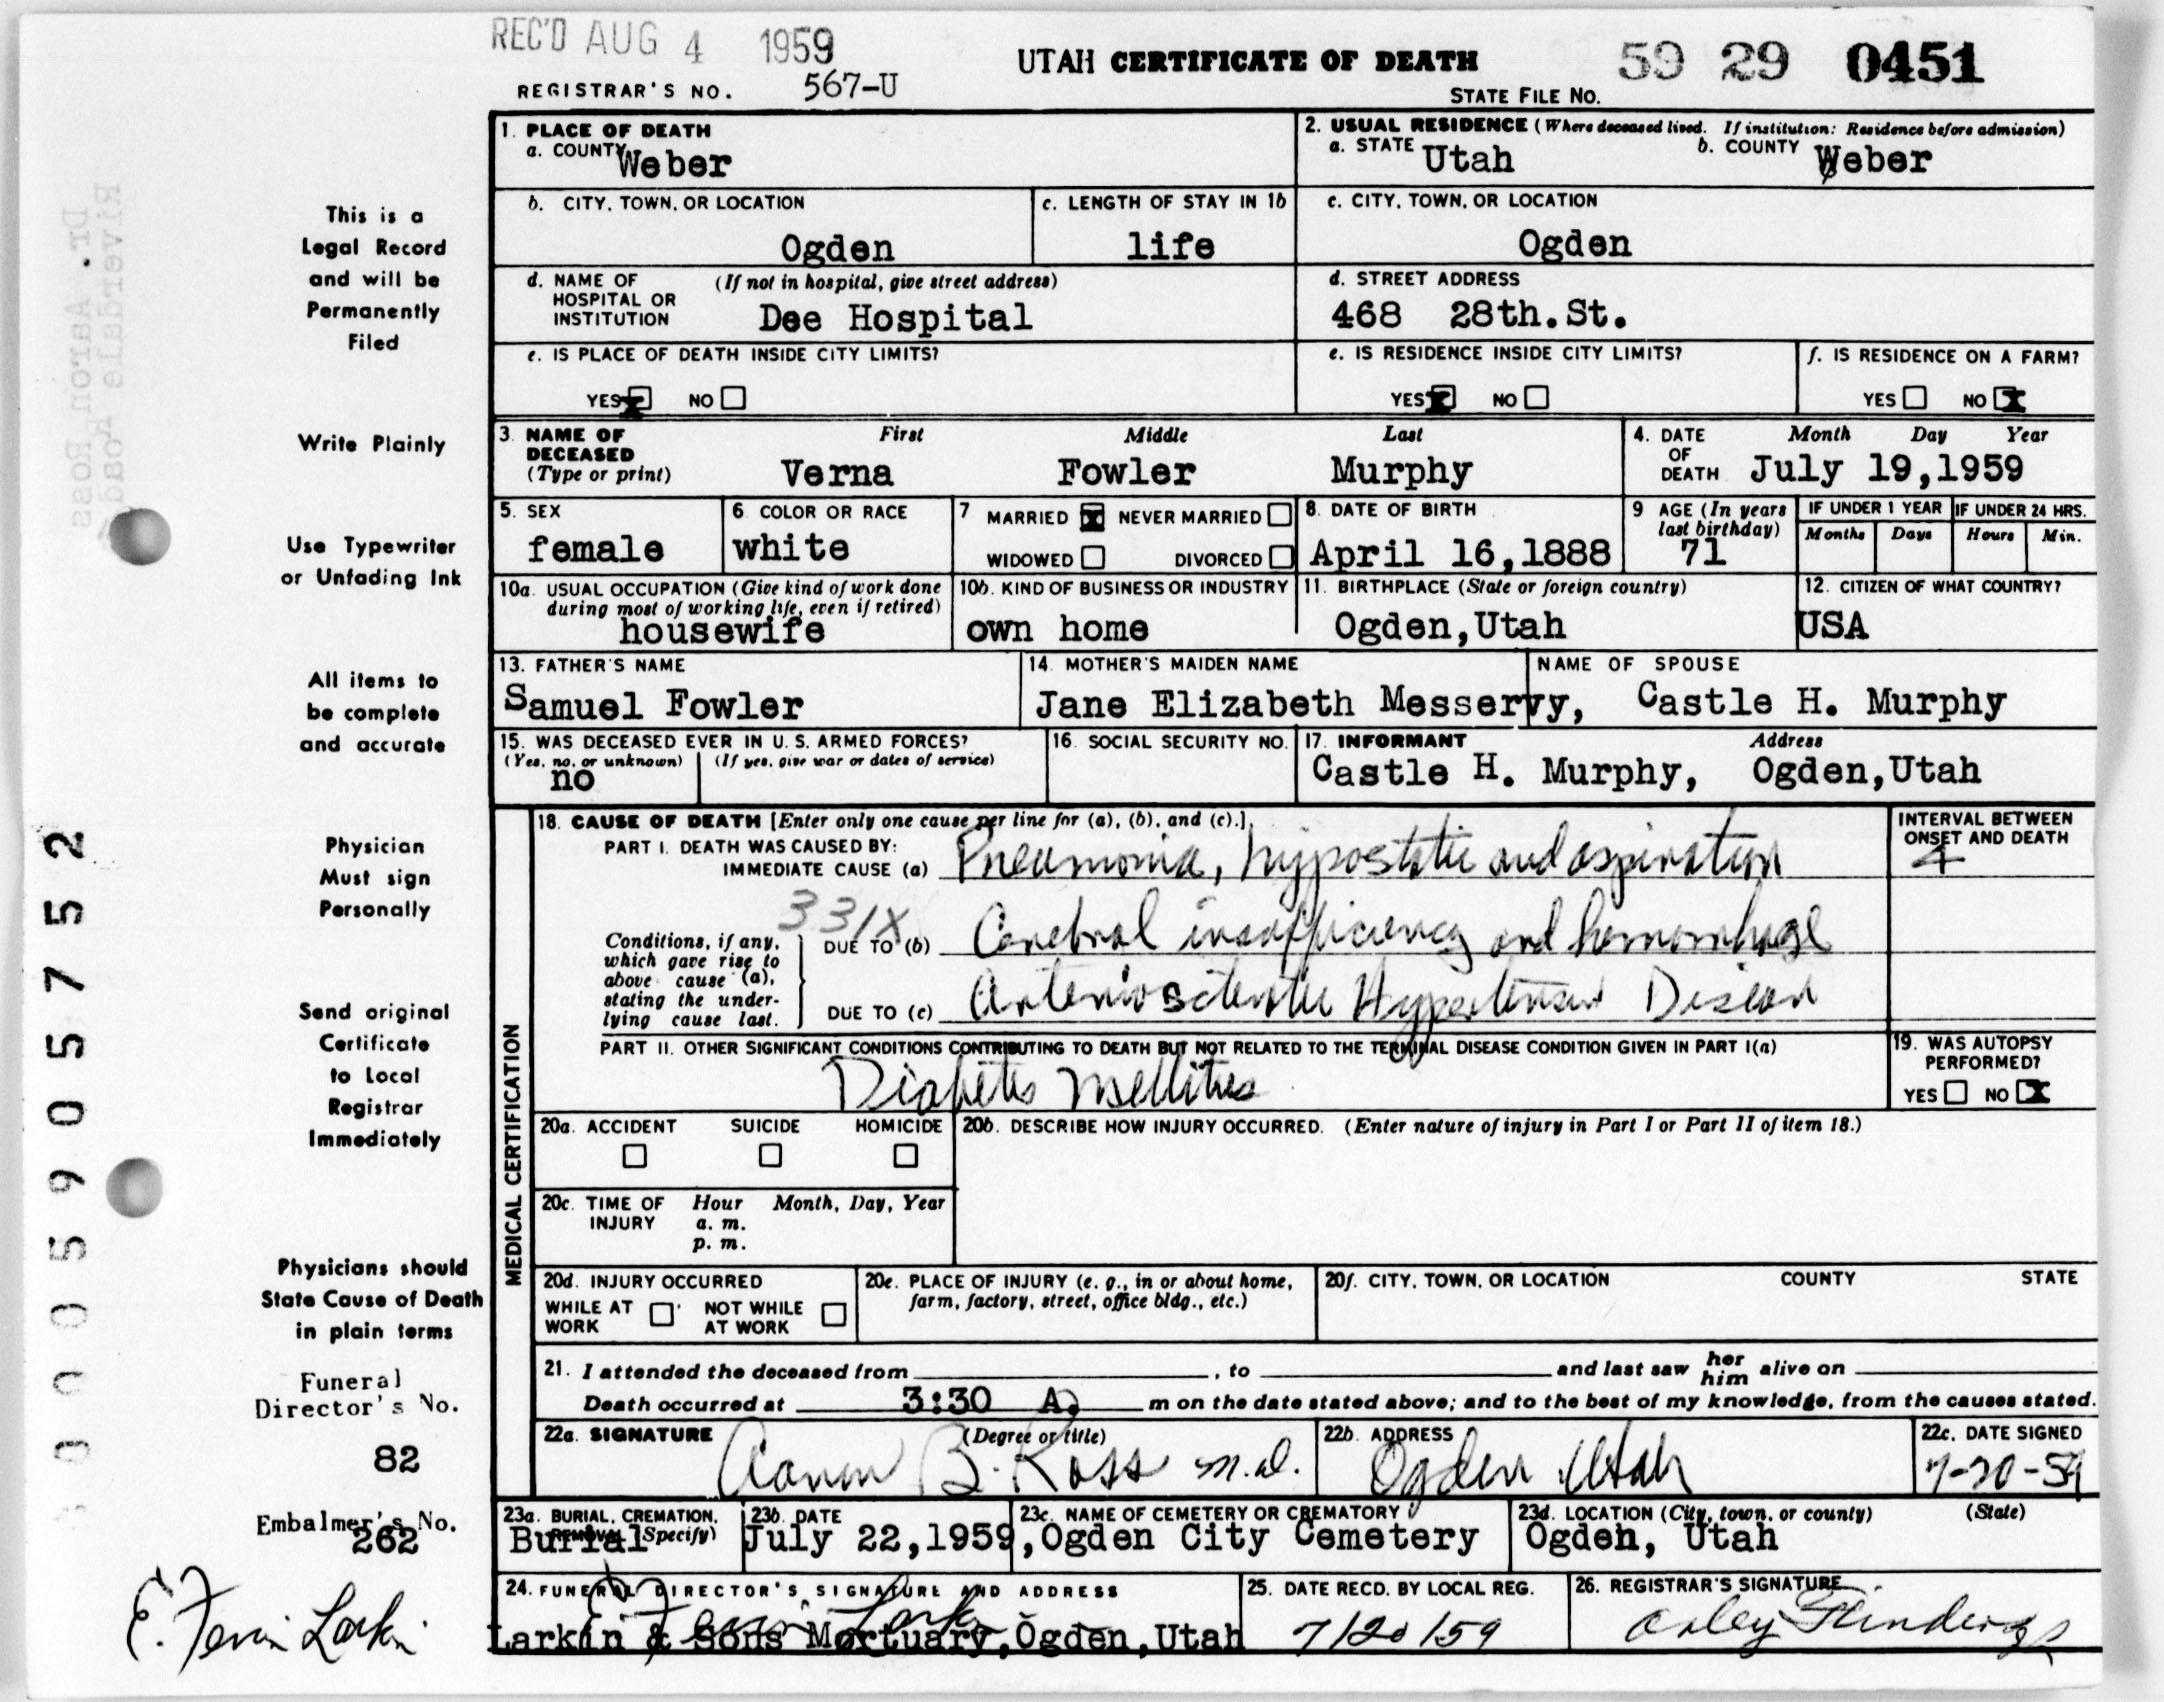 REC'D AUG 4 1959
REGISTRAR'S NO. 567-U
UTAH CERTIFICATE OF DEATH
59 29 0451
STATE FILE NO.
This is a
Legal Record
and will be
Permanently
Filed
Write Plainly
Use Typewriter
or Unfading Ink
All items to
be complete
and accurate
Physician
Must sign
Personally
Send original
Certificate
to Local
Registrar
Immediately
Physicians should
State Cause of Death
in plain terms
Funeral
Director's No.
82
Embalmer's No.
262
E. Fervin Larkin
Dr. Aaron Ross
Riverdale Road
005905752
1. PLACE OF DEATH
a. COUNTY Weber
2. USUAL RESIDENCE (Where deceased lived. If institution: Residence before admission)
a. STATE Utah b. COUNTY Weber
b. CITY, TOWN, OR LOCATION
Ogden
c. LENGTH OF STAY IN 1b
life
c. CITY, TOWN, OR LOCATION
Ogden
d. NAME OF HOSPITAL OR INSTITUTION (If not in hospital, give street address)
Dee Hospital
d. STREET ADDRESS
468 28th.St.
e. IS PLACE OF DEATH INSIDE CITY LIMITS?
YES X NO
e. IS RESIDENCE INSIDE CITY LIMITS?
YES X NO
f. IS RESIDENCE ON A FARM?
YES NO X
3. NAME OF DECEASED (Type or print)
First Middle Last
Verna Fowler Murphy
4. DATE OF DEATH Month Day Year
July 19,1959
5. SEX
female
6. COLOR OR RACE
white
7 MARRIED X NEVER MARRIED
WIDOWED DIVORCED
8. DATE OF BIRTH
April 16,1888
9 AGE (In years last birthday)
71
IF UNDER 1 YEAR IF UNDER 24 HRS.
Months Days Hours Min.
10a. USUAL OCCUPATION (Give kind of work done during most of working life, even if retired)
housewife
10b. KIND OF BUSINESS OR INDUSTRY
own home
11. BIRTHPLACE (State or foreign country)
Ogden,Utah
12. CITIZEN OF WHAT COUNTRY?
USA
13. FATHER'S NAME
Samuel Fowler
14. MOTHER'S MAIDEN NAME
Jane Elizabeth Messervy,
NAME OF SPOUSE
Castle H. Murphy
15. WAS DECEASED EVER IN U. S. ARMED FORCES?
(Yes, no, or unknown) (If yes, give war or dates of service)
no
16. SOCIAL SECURITY NO.
17. INFORMANT Address
Castle H. Murphy, Ogden,Utah
MEDICAL CERTIFICATION
18. CAUSE OF DEATH [Enter only one cause per line for (a), (b), and (c).]
PART I. DEATH WAS CAUSED BY:
IMMEDIATE CAUSE (a) Pneumonia, hypostatic and aspiration
INTERVAL BETWEEN ONSET AND DEATH
4
331X
Conditions, if any, which gave rise to above cause (a), stating the underlying cause last.
DUE TO (b) Cerebral insufficiency and hemorrhage
DUE TO (c) Arteriosclerotic Hypertensive Disease
PART II. OTHER SIGNIFICANT CONDITIONS CONTRIBUTING TO DEATH BUT NOT RELATED TO THE TERMINAL DISEASE CONDITION GIVEN IN PART I(a)
Diabetes Mellitus
19. WAS AUTOPSY PERFORMED?
YES NO X
20a. ACCIDENT SUICIDE HOMICIDE
20b. DESCRIBE HOW INJURY OCCURRED. (Enter nature of injury in Part I or Part II of item 18.)
20c. TIME OF INJURY Hour Month, Day, Year
a. m.
p. m.
20d. INJURY OCCURRED
WHILE AT WORK NOT WHILE AT WORK
20e. PLACE OF INJURY (e. g., in or about home, farm, factory, street, office bldg., etc.)
20f. CITY, TOWN, OR LOCATION COUNTY STATE
21. I attended the deceased from , to and last saw her him alive on
Death occurred at 3:30 A. m on the date stated above; and to the best of my knowledge, from the causes stated.
22a. SIGNATURE (Degree or title)
Aaron B. Ross M.D.
22b. ADDRESS
Ogden Utah
22c. DATE SIGNED
7-20-59
23a. BURIAL, CREMATION, REMOVAL (Specify)
Burial
23b. DATE
July 22,1959,
23c. NAME OF CEMETERY OR CREMATORY
Ogden City Cemetery
23d. LOCATION (City, town, or county) (State)
Ogden, Utah
24. FUNERAL DIRECTOR'S SIGNATURE AND ADDRESS
Larkin & Sons Mortuary,Ogden,Utah
25. DATE RECD. BY LOCAL REG.
7/20/59
26. REGISTRAR'S SIGNATURE